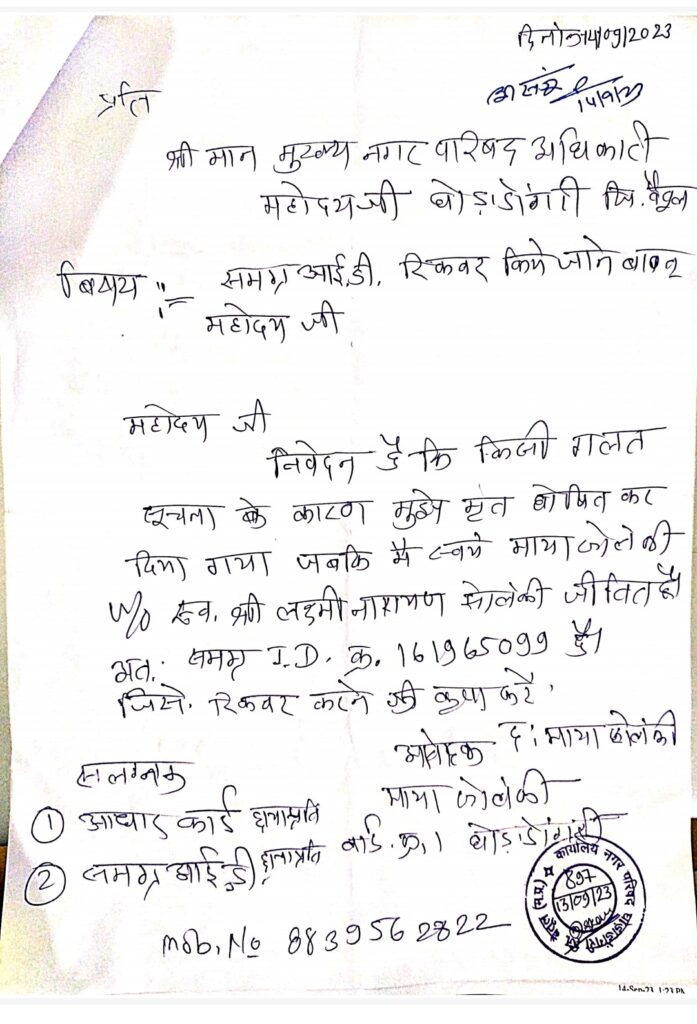 दिनांक 14/09/2023
14/9/23
प्रति
श्री मान मुख्य नगर परिषद अधिकारी
महोदय जी घोड़ाडोंगरी जि. बैतूल
विषय :- समग्र आई.डी. रिकवर किये जाने बावत
महोदय जी
महोदय जी
निवेदन है कि किसी गलत
सूचना के कारण मुझे मृत घोषित कर
दिया गया जबकि मै स्वयं माया सोलंकी
W/o स्व. श्री लक्ष्मीनारायण सोलंकी जीवित है।
अत: समग्र I.D. क्र. 161965099 है।
जिसे. रिकवर करने की कृपा करें.
आवेदक द: माया सोलंकी
सलग्नक माया सोलंकी
① आधार कार्ड छायाप्रति वार्ड. क्र. 1 घोड़ाडोंगरी
② समग्र आई.डी छायाप्रति
कार्यालय नगर परिषद घोड़ाडोंगरी जि. बैतूल (म.प्र.)
897
13/09/23
Mob. No 8839562822
14-Sep-23 1:23 PM